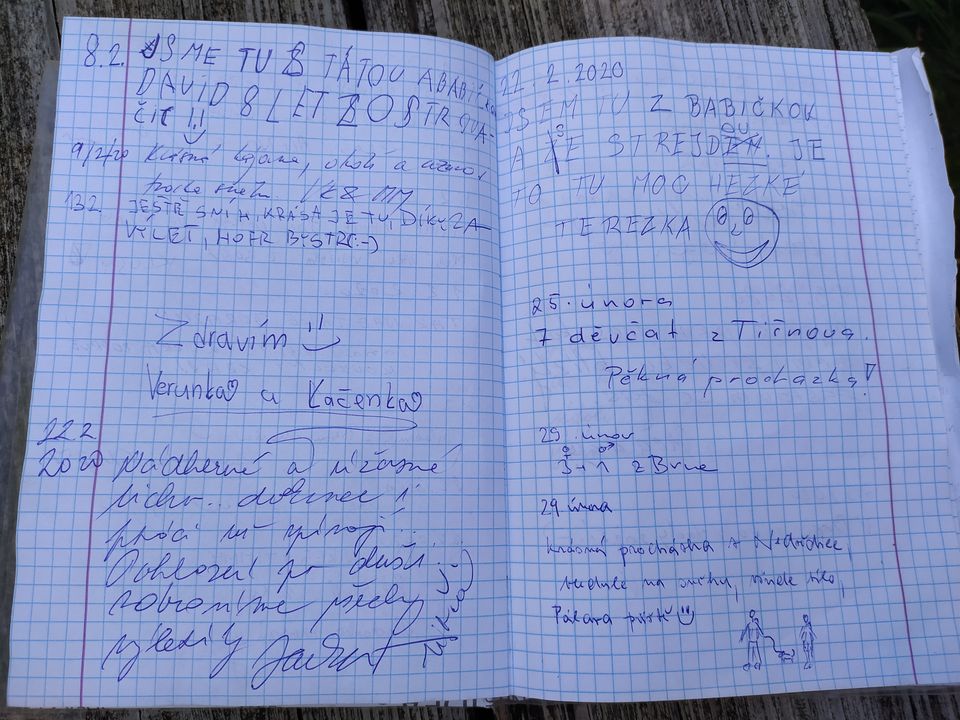 8.2. JSME TU S TÁTOU A BABIČKOU
DAVID 8 LET Z OSTRAVA-
ČIC !!
9/2/20 Krásná krajina, okolí a
trocha sněhu
13.2. JEŠTĚ SNÍH, KRÁSA JE TU, DÍKY ZA
VÝLET, HOFR BYSTRC :-)
Zdravím
Verunka a Kačenka
22.2
2020 nádherné a úžasné
ticho... dokonce i
ptáci už zpívají..
Pohlazení po duši
12.2.2020
JSEM TU Z BABIČKOU
A SE STREJDOU. JE
TO TU MOC HEZKÉ
TEREZKA
25. února
7 děvčat z Tišnova.
Pěkná procházka!
29. únor
3 + 1 z Brna
29 února
krásná procházka z Nedvědice,
Pálava příště